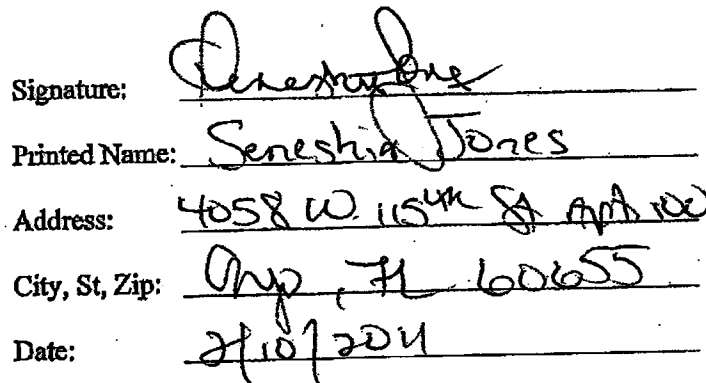 Signature:
Printed Name: Seneshia Jones
Address: 4058 W. 115th St Apt 100
City, St, Zip: , IL 60655
Date: 2/10/2011